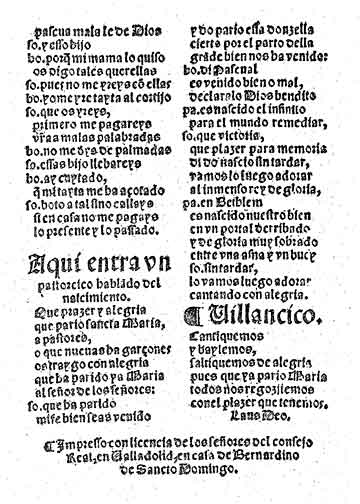 pascua mala le de Dios
so. y esso hijo
bo. porq̃ mi mama lo quiso
os digo tales querellas
so. pues no me vreys cõ ellas
bo. yo me yre tarta al cortijo
so. que os vreys,
primero me pagareys
vr̃a a malas palabradas
bo. no me dys de palmadas
so. essas hijo lleuareys
bo. ay cuytado,
q̃ mi tayta me ha açotado
so. boto a tal si no calleys
si en casa no me pagays
lo presente y lo passado.
Aqui entra vn
pastorcico hablado del
nascimiento.
Que plazer y alegria
que pario sancta Maria,
a pastores,
o que nueuas ha garçones
os traygo con alegria
que ha parido ya Maria
al señor de los señores:
so. que ha parido
mi fe bien seas venido
y do pario essa donzella
cierto por el parto della
grãde bien nos ha venido:
bo. di Pascual
es venido bien o mal,
declaralo Dios bendito
pa. es nascido el infinito
para el mundo remediar,
so. que victoria,
que plazer para memoria
di do nascio sin tardar,
vamos lo luego adorar
al inmenso rey de gloria,
pa. en Bethlem
es nascido nuestro bien
en vn portal derribado
y de gloria muy sobrado
entre vna asna y vn buey
so. sin tardar,
lo vamos luego adorar
cantando con alegria.
¶ Uillancico.
Cantiquemos
y baylemos,
saltiquemos de alegria
pues que ya pario Maria
todos nos regozijemos
con el plazer que tenemos.
Laus Deo.
¶ Impresso con licencia de los señores del consejo
Real, en Ualladolid, en casa de Bernardino
de Sancto Domingo.